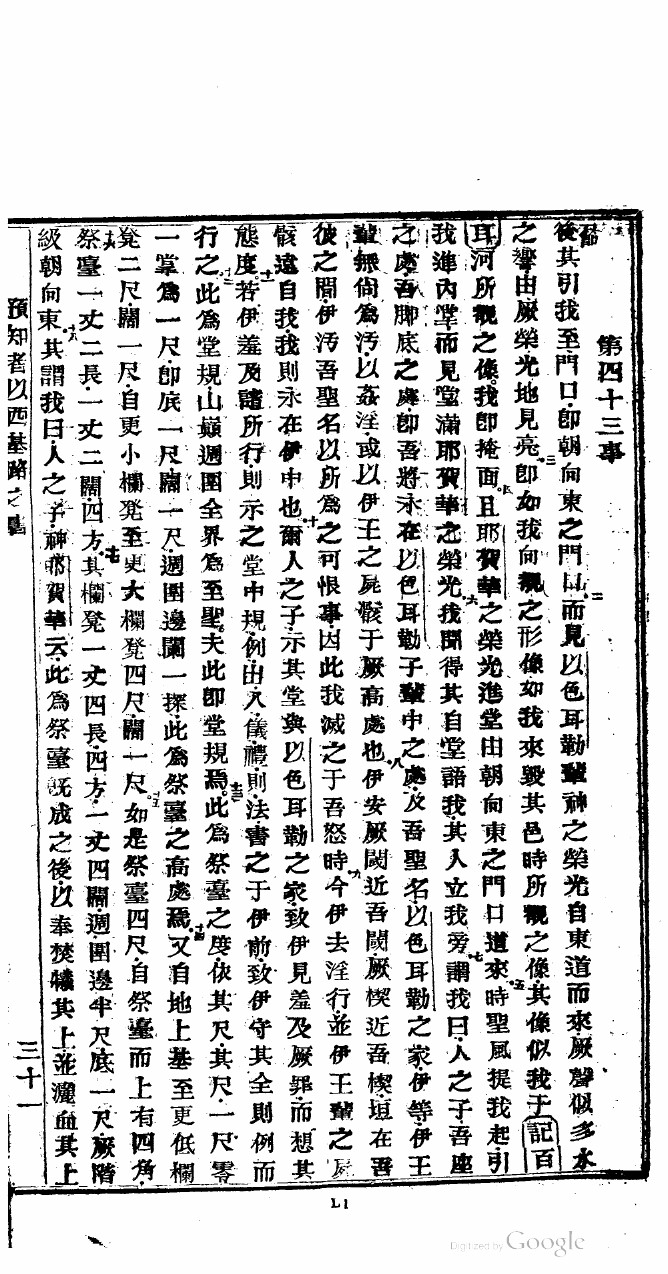 第四十三章
後其引我至門口即朝向東之門口而見以色耳勒輩神之榮光自東道而來厥聲似多水
之響由厥榮光地見亮即如我向觀之形像如我來毀其邑時所觀之像其像似我于記百
耳河所觀之像我即掩面且耶賀華之榮光進堂由朝向東之門口道來時聖風提我起引
我進內堂而見堂滿耶賀華之榮光我聞得其自堂語我其人立我旁謂我曰人之子吾座
之處吾脚底之處即吾將永在以色耳勒子輩中之處及吾聖名以色耳勒之家伊等伊王
輩無尚爲汚以姦淫或以伊王之屍骸于厥高處也伊安厥閾近吾閾厥楔近吾楔垣在吾
彼之間伊汚吾聖名以所爲之可恨事因此我滅之于吾怒時今伊去淫行並伊王輩之屍
骸遠自我我則永在伊中也爾人之子示其堂與以色耳勒之家致伊見羞及厥罪而想其
態度若伊羞及諸所行則示之堂中規例出入儀禮則法書之于伊前致伊守其全則例而
行之此爲堂規山巔週圍全界爲至聖夫此即堂規焉此爲祭臺之度依其尺其尺一尺零
一掌爲一尺即底一尺闊一尺週圍邊闌一探此爲祭臺之高處焉又自地上基至更低欄
凳二尺闊一尺自更小欄凳至更大欄凳四尺闊一尺如是祭臺四尺自祭臺而上有四角
祭臺一丈二長一丈二闊四方其欄凳一丈四長四方一丈四闊週圍邊半尺底一尺厥階
級朝向東其謂我曰人之子神耶賀華云此爲祭臺旣成之後以奉焚犧其上並灑血其上
預知者以西基路之書
三十一
L1
Digitized by Google